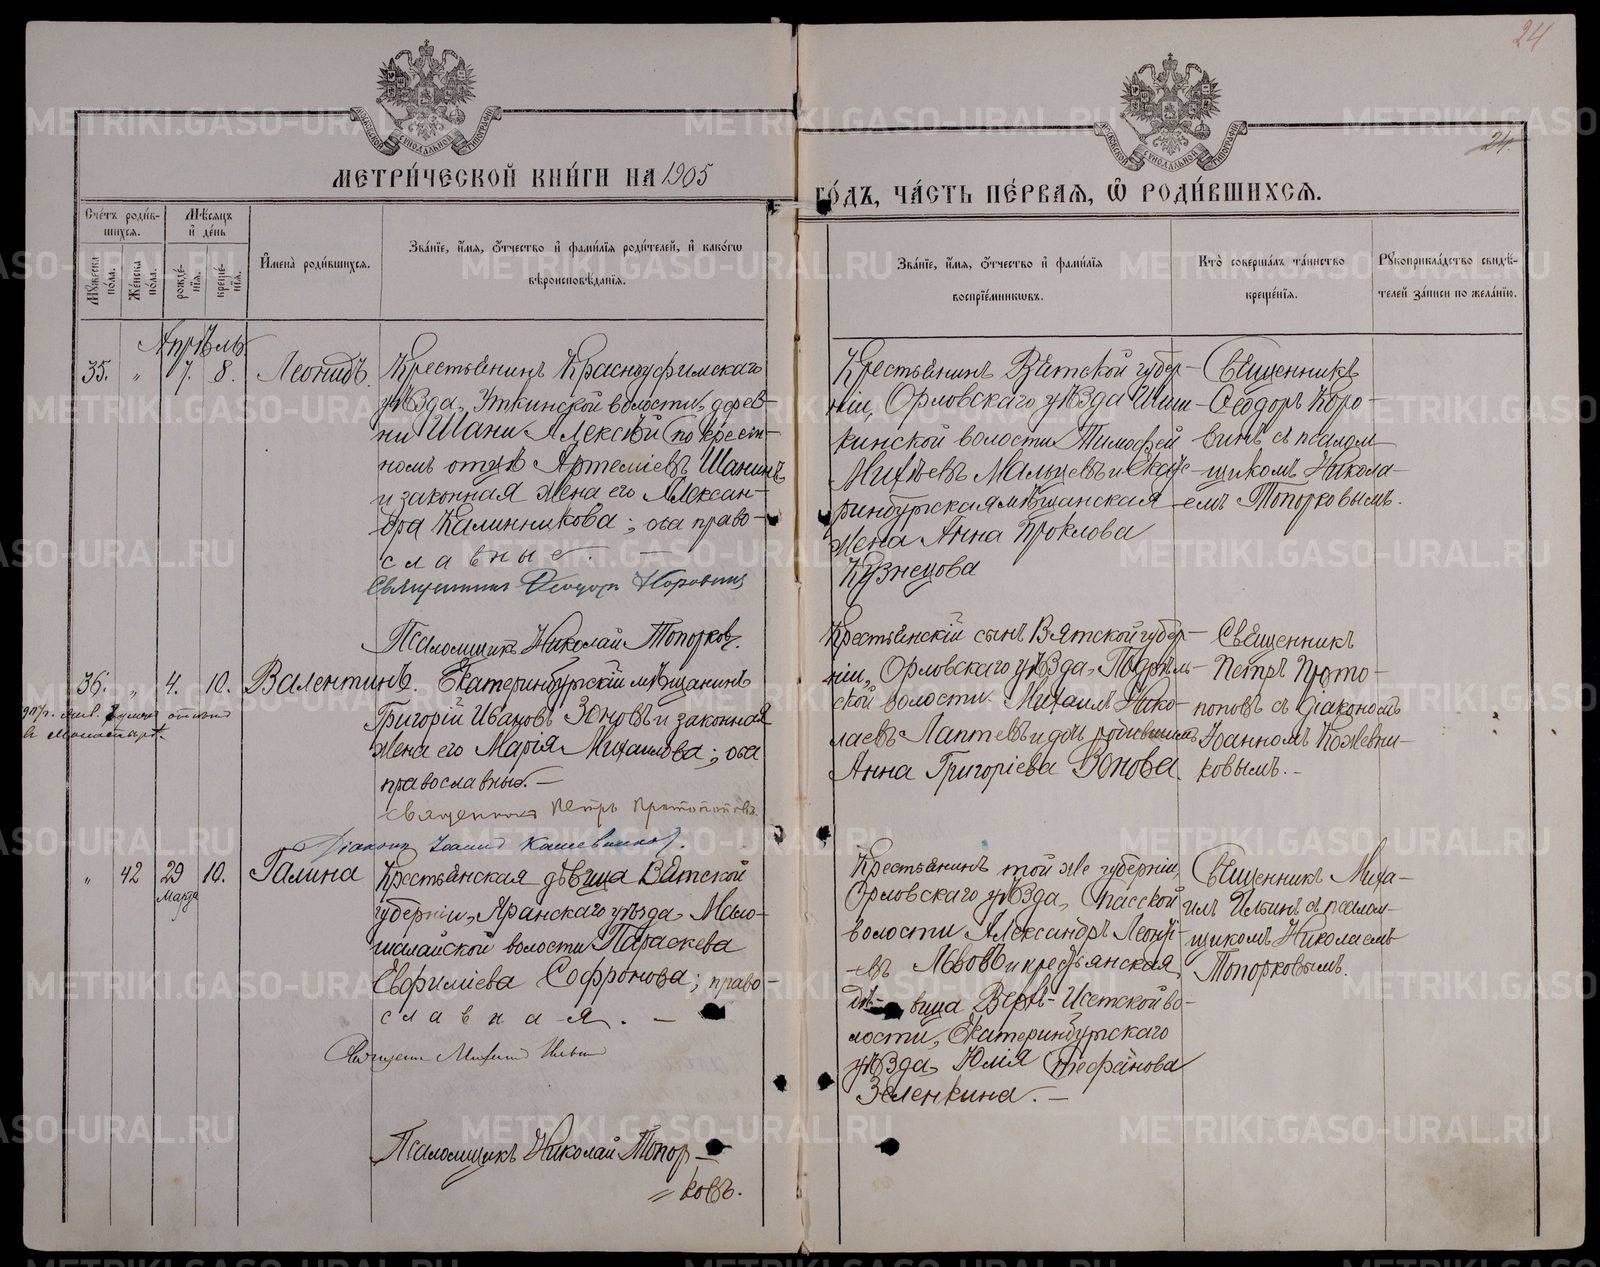 24
24.
МЕТРИ́ЧЕСКОЙ КНИ́ГИ НА 1905
ГО́ДЪ, ЧА́СТЬ ПЕ́РВАЯ, Ѽ РОДИ́ВШИХСЯ.
Сче́тъ роди́в-
шихся.
Мѣ́сяцъ
и҆ де́нь
Му́жеска
по́ла.
Же́нска
по́ла.
рожде́-
нїя.
креще́-
нїя.
И҆мена̀ роди́вшихся.
Зва́нїе, и҆́мя, ѻ҆́тчество и҆ фами́лїя роди́телей, и҆ како́гѡ
вѣроисповѣ́данїя.
Зва́нїе, и҆́мя, ѻ҆́тчество и҆ фами́лїя
воспрїе́мниковъ.
Кто̀ соверша́лъ та́инство
креще́нїя.
Рꙋкоприкла́дство свидѣ́-
телей за́писи по жела́нїю.
Апрѣль
35. „ 7. 8. Леонидъ.
Крестьянинъ Красноуфимскаго
уѣзда, Уткинской волости, дерев-
ни Шани Алексѣй (по крест-
номъ отцѣ Артеміевъ Шанинъ
и законная жена его Алексан-
дра Калинникова; оба право-
славные. —
Священникъ Ѳеодоръ Коровинъ
Псаломщикъ Николай Топорковъ.
Крестьянинъ Вятской губер-
ніи, Орловскаго уѣзда
кинской волости Тимофей
Михѣевъ Мальцевъ и Екате-
ринбургская мѣщанская
жена Анна Проклова
Кузнецова
Священникъ
Ѳеодоръ Коро-
винъ съ псалом-
щикомъ Никола-
емъ Топорковымъ.
36. „ 4. 10. Валентинъ.
Екатеринбургскій мѣщанинъ
Григорій Ивановъ Зоновъ и законная
жена его Марія Михаилова; оба
православные. —
Священникъ Петръ Протопоповъ
Діаконъ Іоаннъ Кожевниковъ.
Крестьянскій сынъ Вятской губер-
ніи, Орловскаго уѣзда,
ской волости Михаилъ Нико-
лаевъ Лаптевъ и
Анна Григоріева Зонова.
Священникъ
Петръ Прото-
поповъ съ діакономъ
Іоанномъ Кожевни-
ковымъ. —
„ 42 29 10. Галина
Марта
Крестьянская дѣвица Вятской
губерніи, Яранскаго уѣзда, Мало-
шалайской волости Параскева
Евфиміева Софронова; право-
славная. —
Священ Михаилъ Ильинъ
Псаломщикъ Николай Топор-
ковъ.
Крестьянинъ той же губерніи,
Орловскаго уѣзда, Спасской
волости Александръ Леонті-
евъ Львовъ и крестьянская
дѣвица Верхъ-Исетской во-
лости, Екатеринбургскаго
уѣзда, Юлія Стефанова
Зеленкина. —
Священникъ Миха-
илъ Ильинъ съ псалом-
щикомъ Николаемъ
Топорковымъ.
METRIKI.GASO-URAL.RU